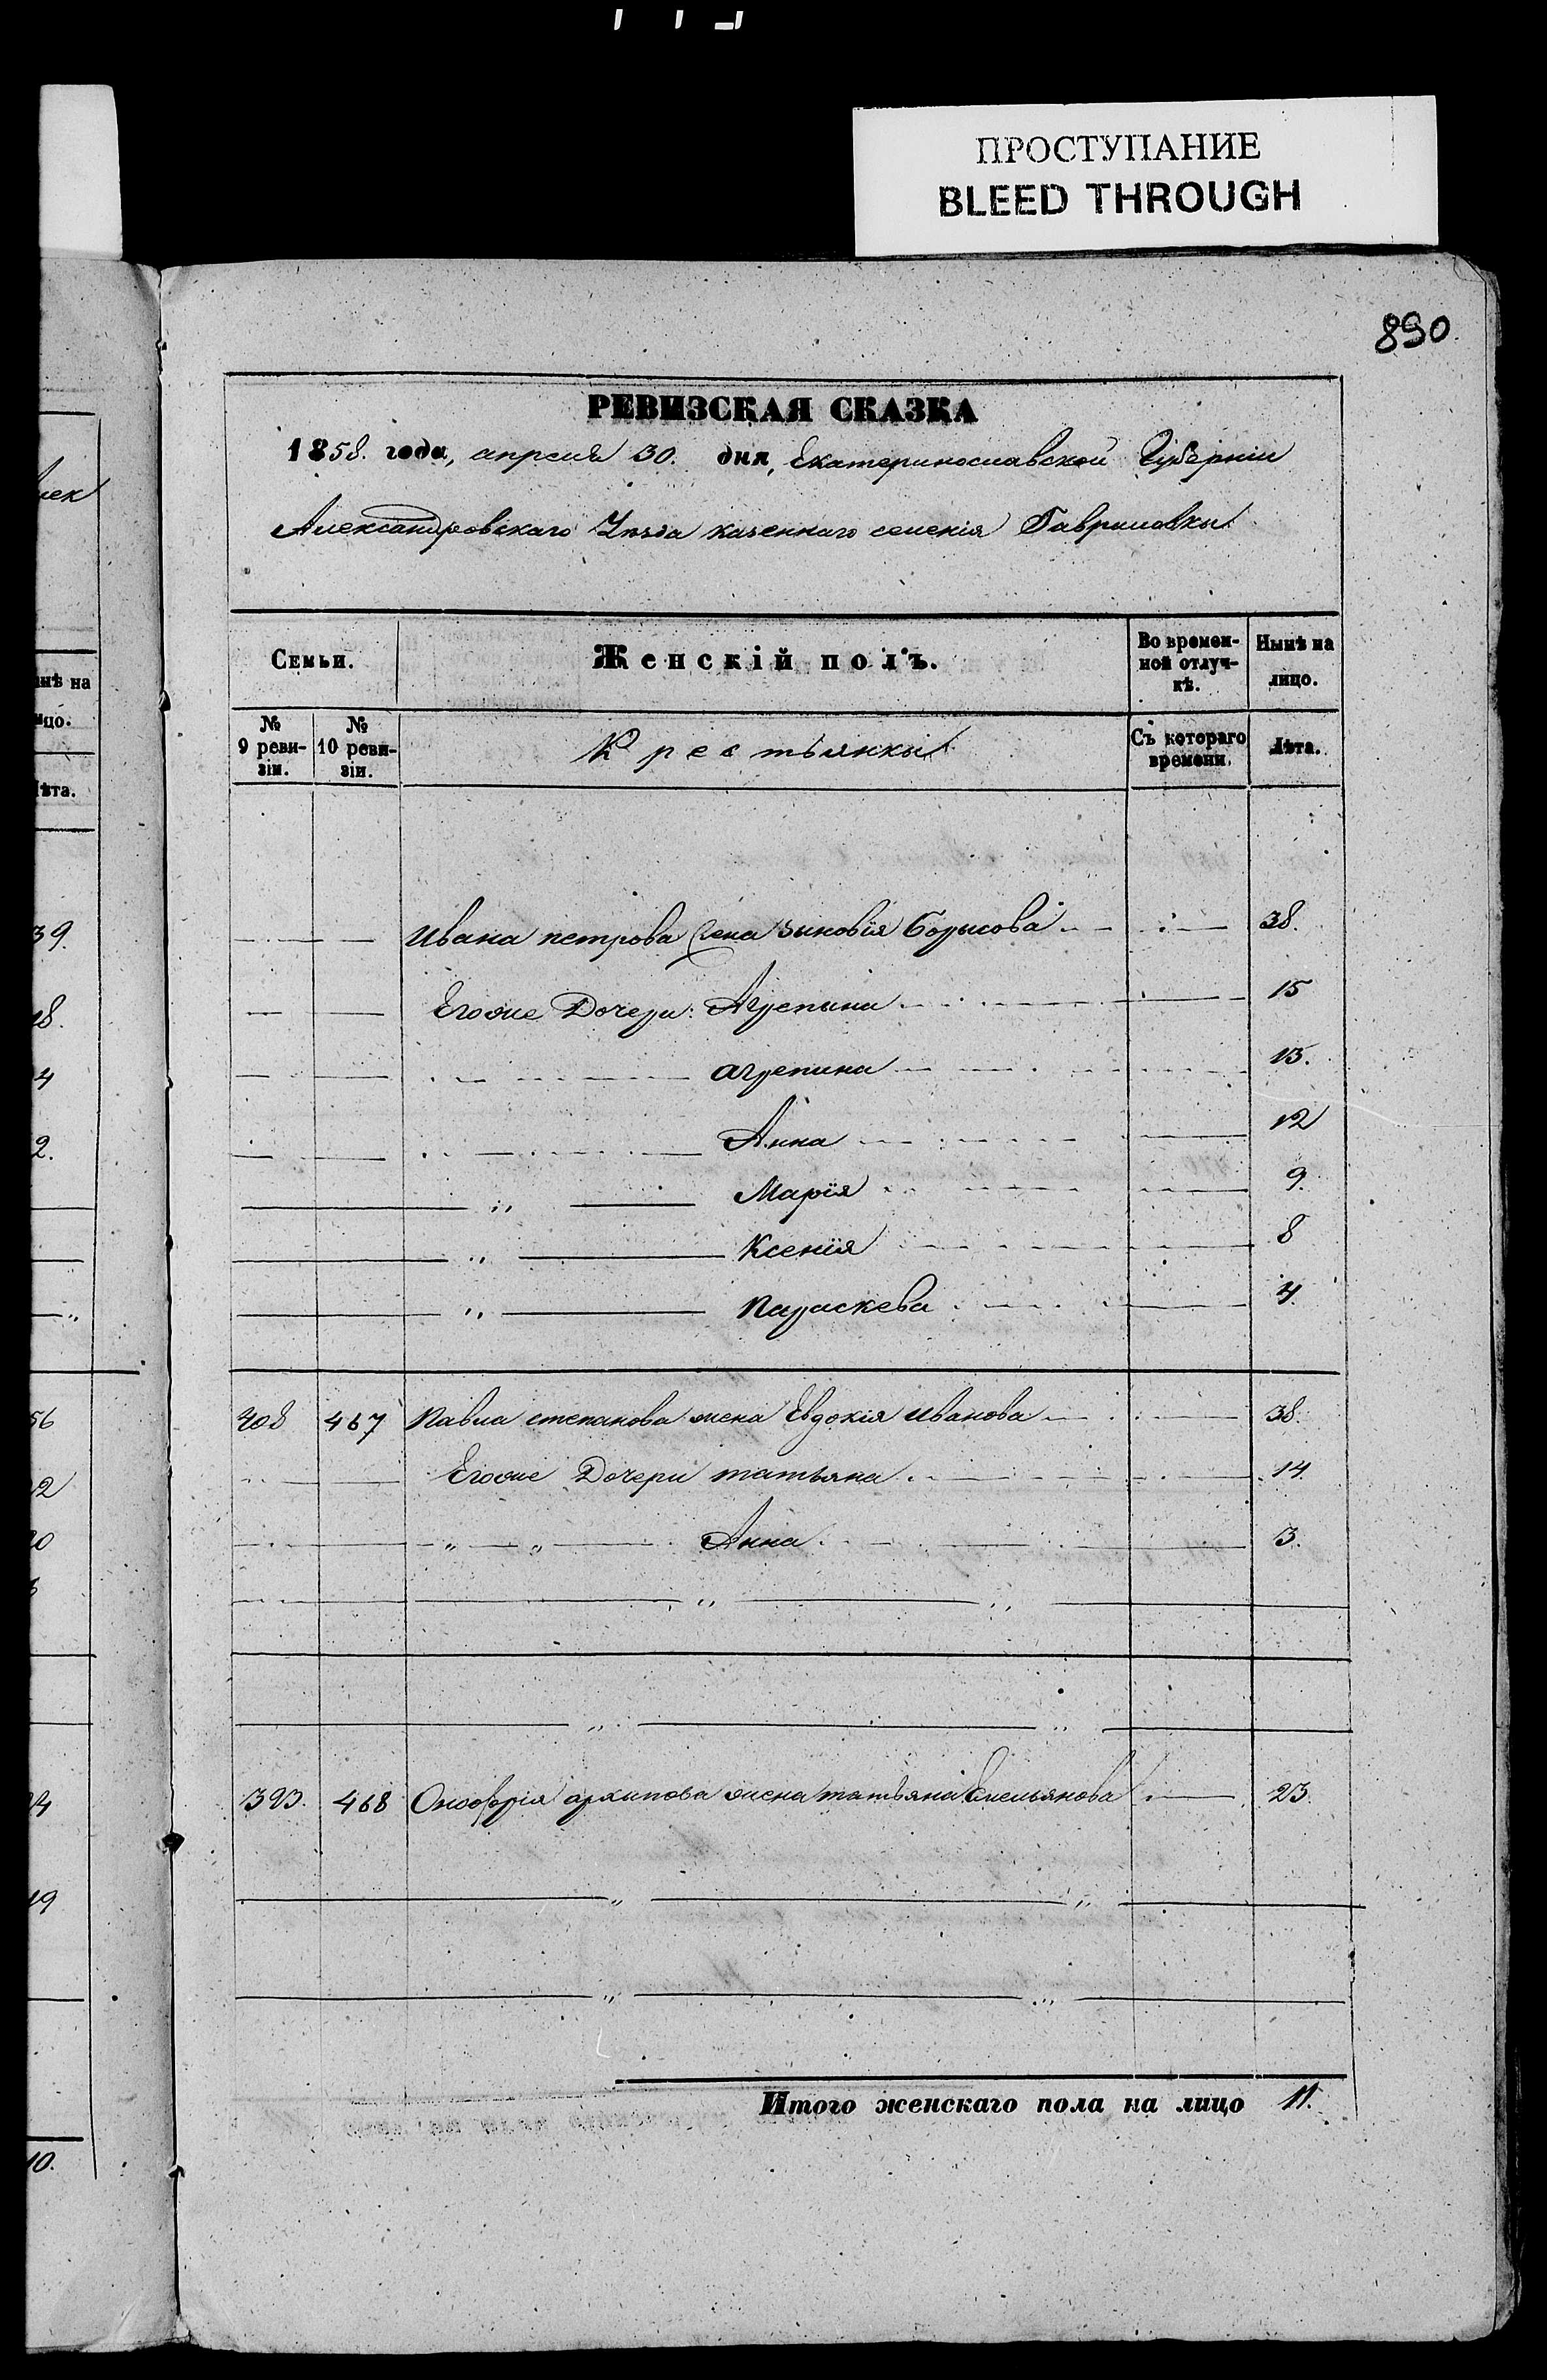 ПРОСТУПАНИЕ
BLEED THROUGH
890.
РЕВИЗСКАЯ СКАЗКА
1858. года, апреля 30. дня, Екатеринославской Губерніи
Александровскаго Уезда казеннаго селенія Гавриловки
Семьи.
Женскій полъ.
Во времен-
ной отлуч-
кѣ.
Нынѣ на
лицо.
№
9 реви-
зіи.
№
10 реви-
зіи.
Крестьянки
Съ котораго
времени.
Лѣта.
Ивана петрова жена Зыновія Борисова 38.
Егоже Дочери: Агрепына 15
агрепина 13.
Анна 12
Марія 9.
Ксенія 8
Параскева 4.
408 467 Павла степанова жена Евдокія Иванова 38.
Егоже Дочери татьяна 14.
Анна 3.
393. 468 Онофрія архипова жена татьяна Емельянова 23.
Итого женскаго пола на лицо 11.